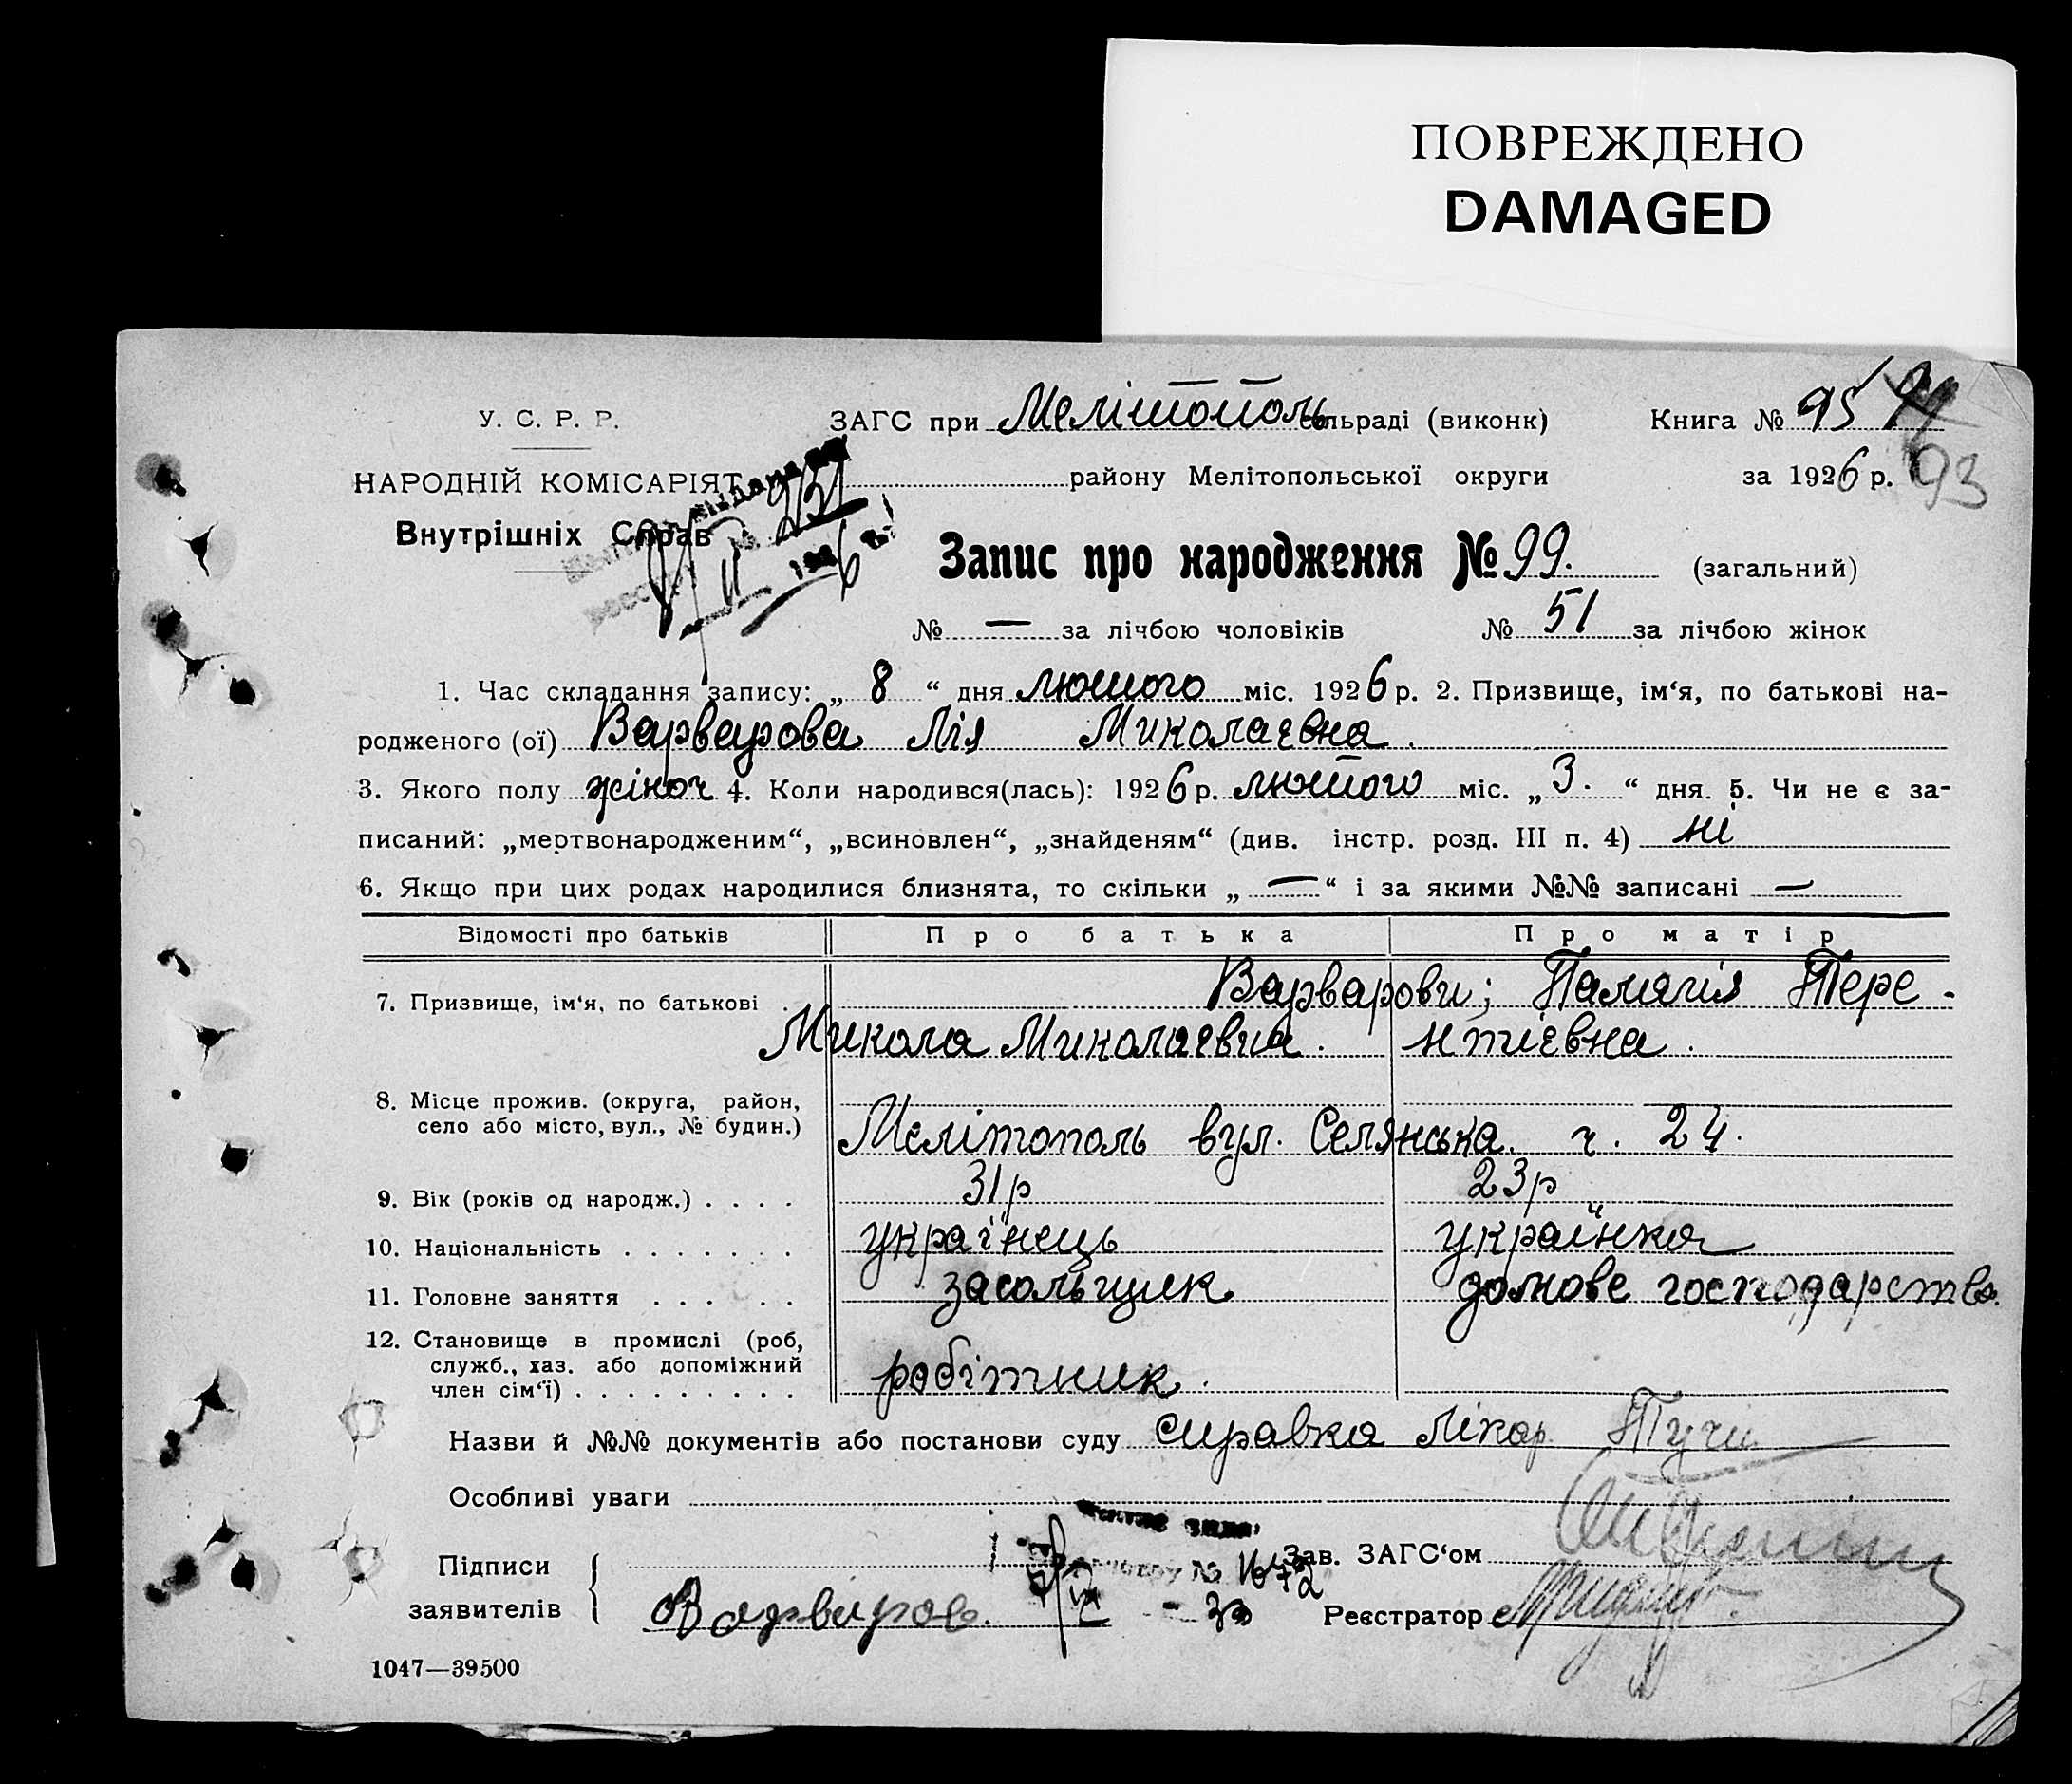 ПОВРЕЖДЕНО
DAMAGED
У. С. Р. Р. ЗАГС при Мелітополь сельраді (виконк) Книга № 95
НАРОДНІЙ КОМІСАРІЯТ району Мелітопольської округи за 1926 р. 93
Внутрішніх Справ
Запис про народження № 99. (загальний)
№ — за лічбою чоловіків № 51 за лічбою жінок
1. Час складання запису: „ 8 “ дня лютого міс. 1926 р. 2. Призвище, ім‘я, по батькові на-
родженого (ої) Варварова Лія Миколаєвна.
3. Якого полу жіноч 4. Коли народився(лась): 1926 р. лютого міс. „ 3. “ дня. 5. Чи не є за-
писаний: „мертвонародженим“, „всиновлен“, „знайденям“ (див. інстр. розд. III п. 4) ні
6. Якщо при цих родах народилися близнята, то скільки „ — “ і за якими №№ записані —
Відомості про батьків Про батька Про матір
7. Призвище, ім‘я, по батькові . Варварови; Тере-
Микола Миколаевич. нтієвна.
8. Місце прожив. (округа, район,
село або місто, вул., № будин.) Мелітополь вул. Селянська. ч. 24.
9. Вік (років од народж.) . . . . 31р 23р
10. Національність . . . . . . . українець українка
11. Головне заняття . . . . . засольщик домове господарство.
12. Становище в промислі (роб,
служб., хаз. або допоміжний
член сім‘ї) . . . . . . . . . робітник.
Назви й №№ документів або постанови суду справка лікар.
Особливі уваги
Підписи Зав. ЗАГС‘ом
заявителів Варваров. Реєстратор
1047—39500